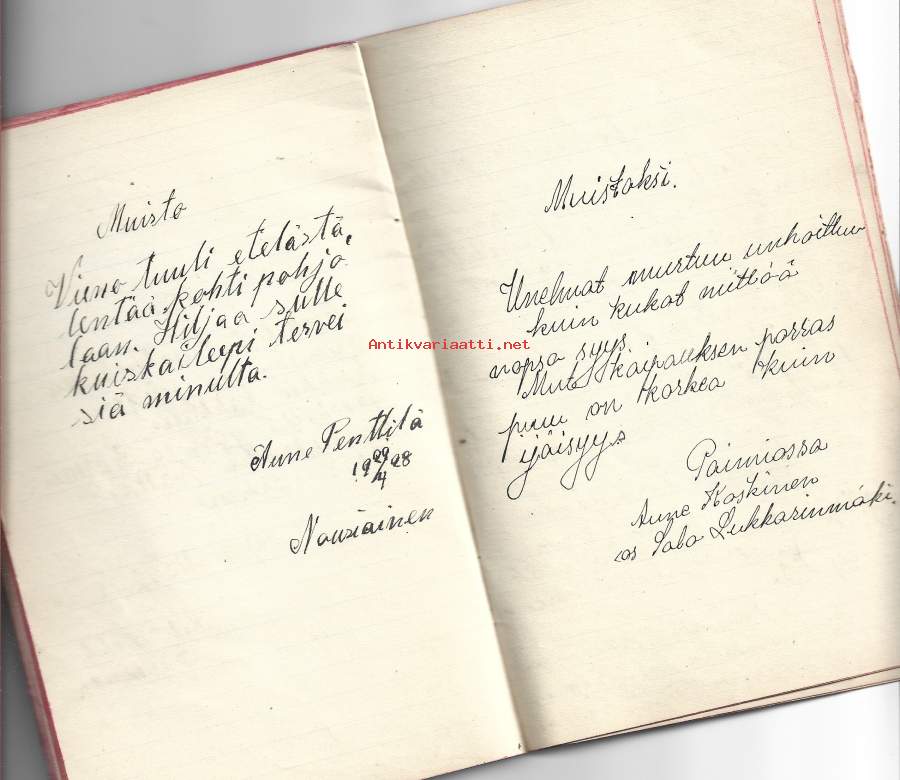 Muisto
Vieno tuuli etelästä,
lentää kohti pohjo
laan. Hiljaa sulle
kuiskailepi tervei
siä minulta.
Aune Penttilä
19 29/4 28
Nousiainen
Muistoksi.
Unelmat murtuu unhoittuu
kuin kukat niittää
nopsa syys.
Mut kaipauksen porras
puu on korkea kuin
ijäisyys
Paimiossa
Aune Koskinen
os Salo Lukkarinmäki.
Antikvariaatti.net